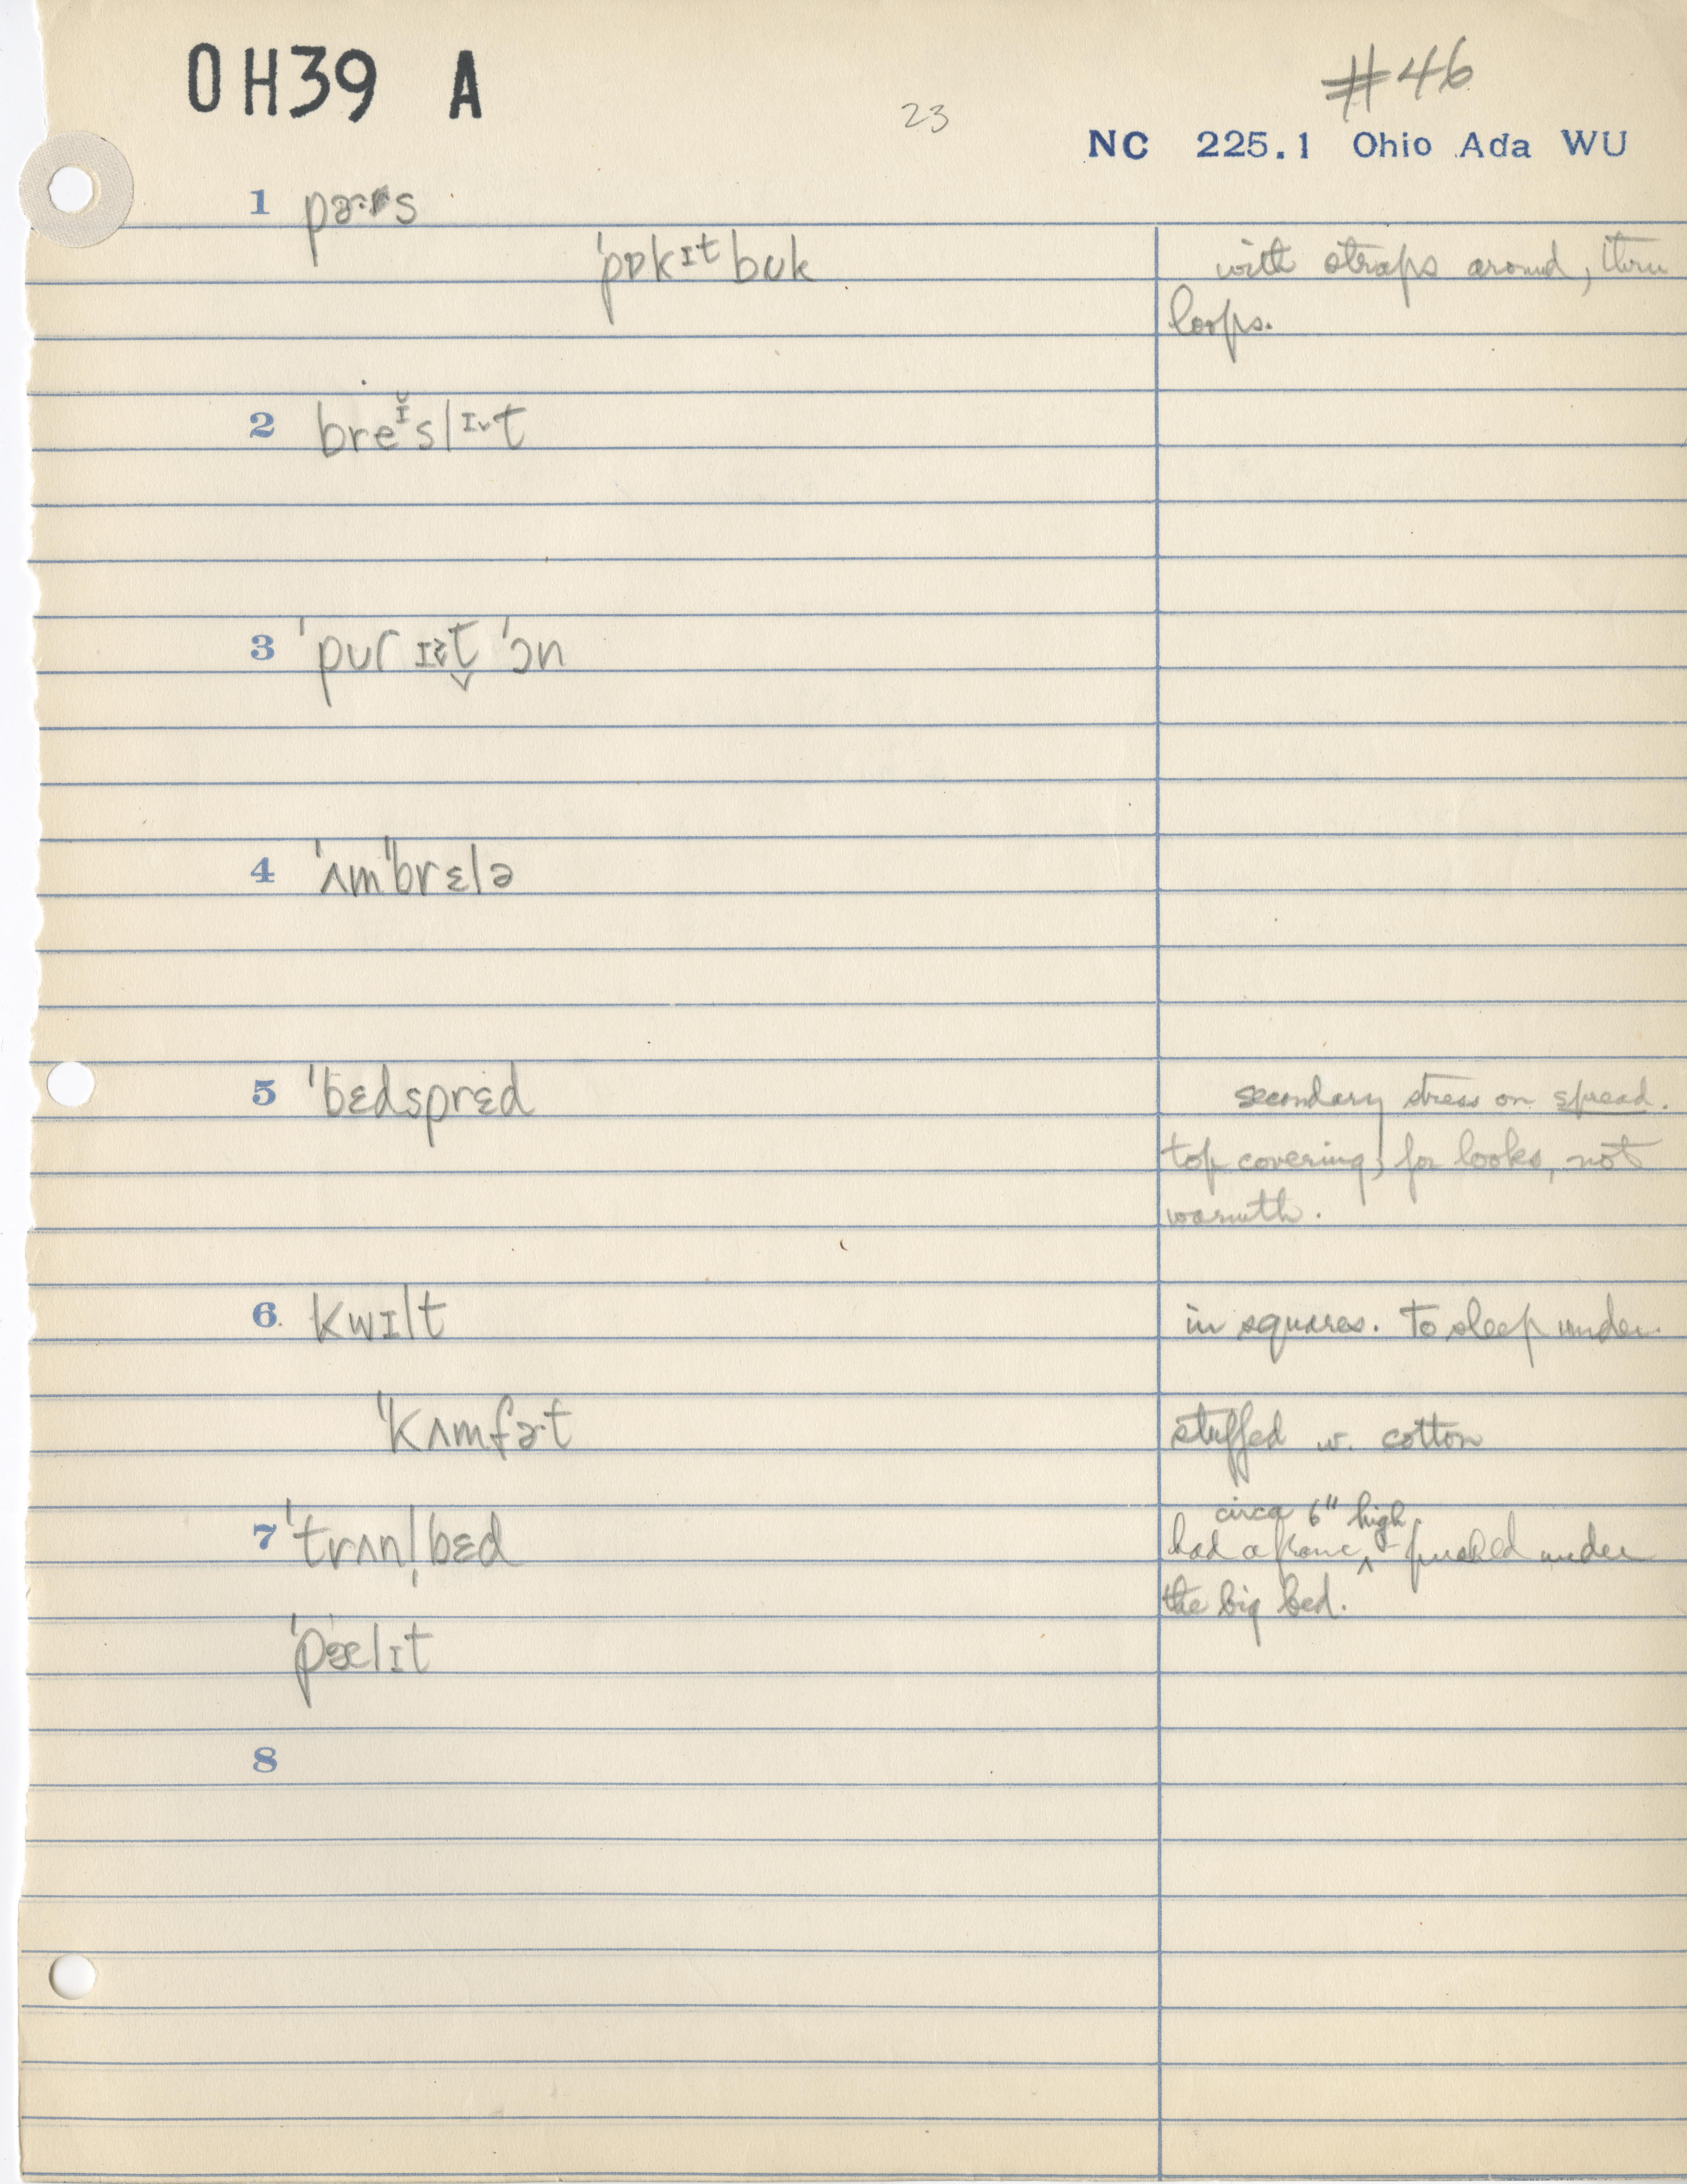 OH39 A
#46
23
NC 225.1 Ohio Ada WU
1 pɚs
ˈpɒkɪt bʊk with straps around, thru
loops.
2 breɪ̆slɪ˅t
3 ˈpʊr ɪt ˈɔn
4 ˈʌmˈbrɛlə
5 ˈbɛdsprɛd secondary stress on spread.
top covering, for looks, not
warmth.
6. kwɪlt in squares. To sleep under.
ˈkʌmfɚt stuffed w. cotton
circa 6" high
7 ˈtrʌnl̩bɛd had a frame, ^ – pushed under
the big bed.
ˈpælɪt
8